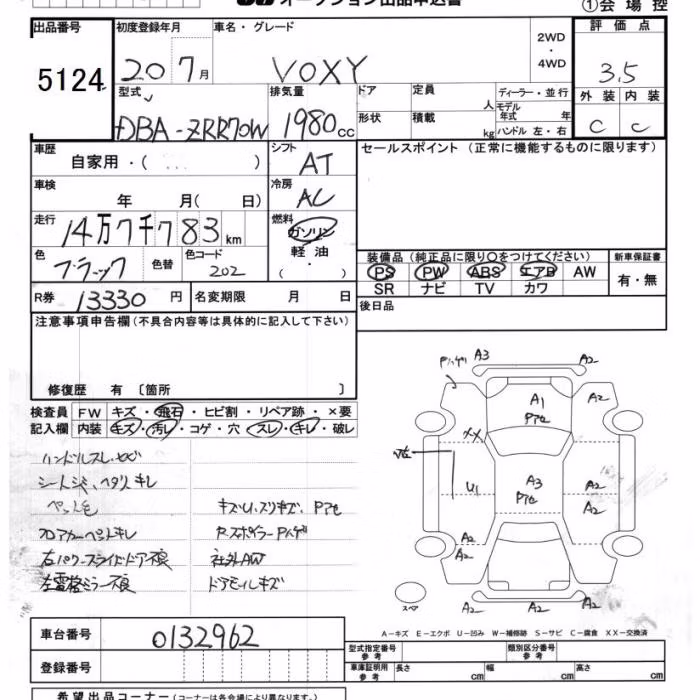 オークション出品申込書
①会場控
出品番号 初度登録年月 車名・グレード 2WD・4WD 評価点
5124 20 7月 VOXY 3.5
型式 排気量 ドア 定員 人 ディーラー・並行 外装 内装
DBA-ZRR70W 1980cc 形状 積載 kg モデル年式 年 C C
ハンドル 左・右
車歴 自家用・( ) シフト AT セールスポイント (正常に機能するものに限ります)
車検 年 月( 日) 冷房 AC
走行 14万7千783km 燃料 ガソリン
軽油
・
( )
色 ブラック 色替 色コード 202
装備品 (純正品に限り○をつけてください) 新車保証書
PS PW ABS エアB AW 有・無
SR ナビ TV カワ
R券 13330円 名変期限 月 日 後日品
注意事項申告欄(不具合内容等は具体的に記入して下さい)
修復歴 有 〔箇所 〕
検査員 FW キズ・飛石・ヒビ割・リペア跡・×要
記入欄 内装 キズ・汚レ・コゲ・穴・スレ・キレ・破レ
ハンドルスレ
シートシミ、ヘタリ キレ
ペット毛 キズU、スリキズ、Pアセ
フロアカーペットキレ R.スポイラーPハゲ
右パワースライドドア不良 社外AW
左電格ミラー不良 ドアモールキズ
Pハゲ A3 A2
A1 A2
Pアセ
XX
A3
U1 Pアセ A2
A2
A2 A2
A2 A2
スペア A2
A−キズ E−エクボ U−凹み W−補修跡 S−サビ C−腐食 XX−交換済
車台番号 0132962
登録番号
型式指定番号 参考 類別区分番号 参考
車庫証明用 参考 長さ cm 幅 cm 高さ cm
希望出品コーナー (コーナーは各会場により異なります。)